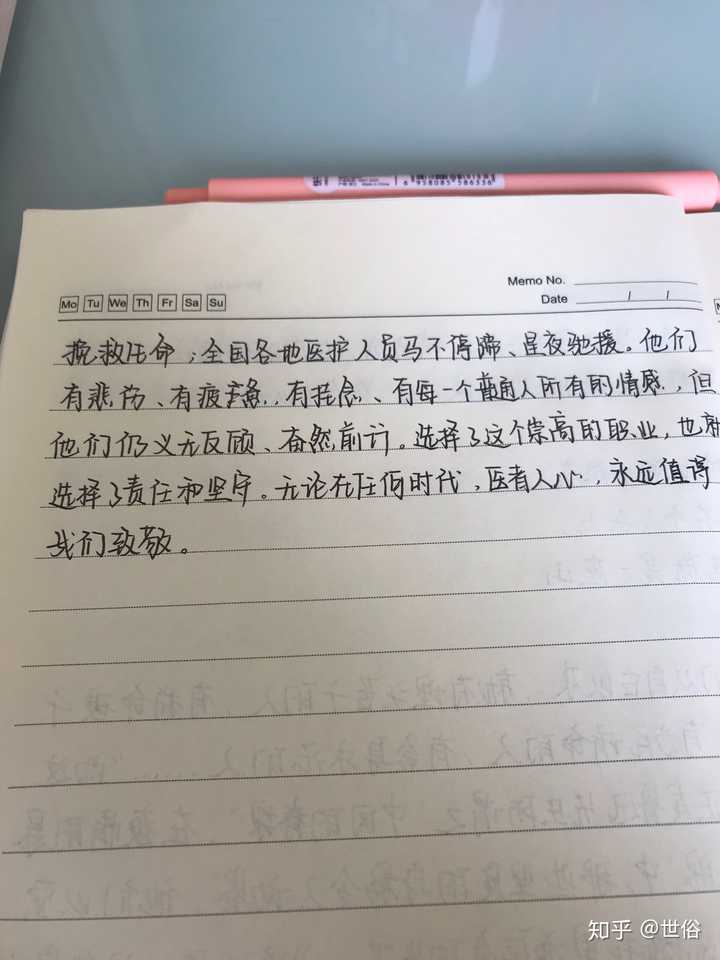 6 958085 586336
Memo No.
Mo Tu We Th Fr Sa Su
Date / /
挽救生命；全国各地医护人员马不停蹄、星夜驰援。他们
有悲伤、有疲惫、有挂念、有每一个普通人所有的情感，但
他们仍义无反顾、奋然前行。选择了这个崇高的职业，也就
选择了责任和坚守。无论在任何时代，医者人心，永远值得
我们致敬。
知乎 @世俗